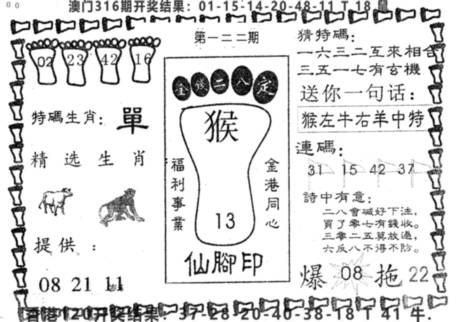 澳门316期开奖结果：01-15-14-20-48-11 T 18 鼠
02 23 42 16
特碼生肖：單
精选生肖
提供：
08 21 11
第一二二期
金錢二八定
猴
福利事業
金港同心
13
仙腳印
猜特碼：
一六三二互來相合
三五一七有玄機
送你一句话：
猴左牛右羊中特
連碼：
31 15 42 37
詩中有意：
二八會碱好下注，
買了零七有錢收。
三零二五莫放過，
六反八不得不防。
爆 08 拖 22
香港120开奖结果：37-28-20-40-38-18 T 41 牛